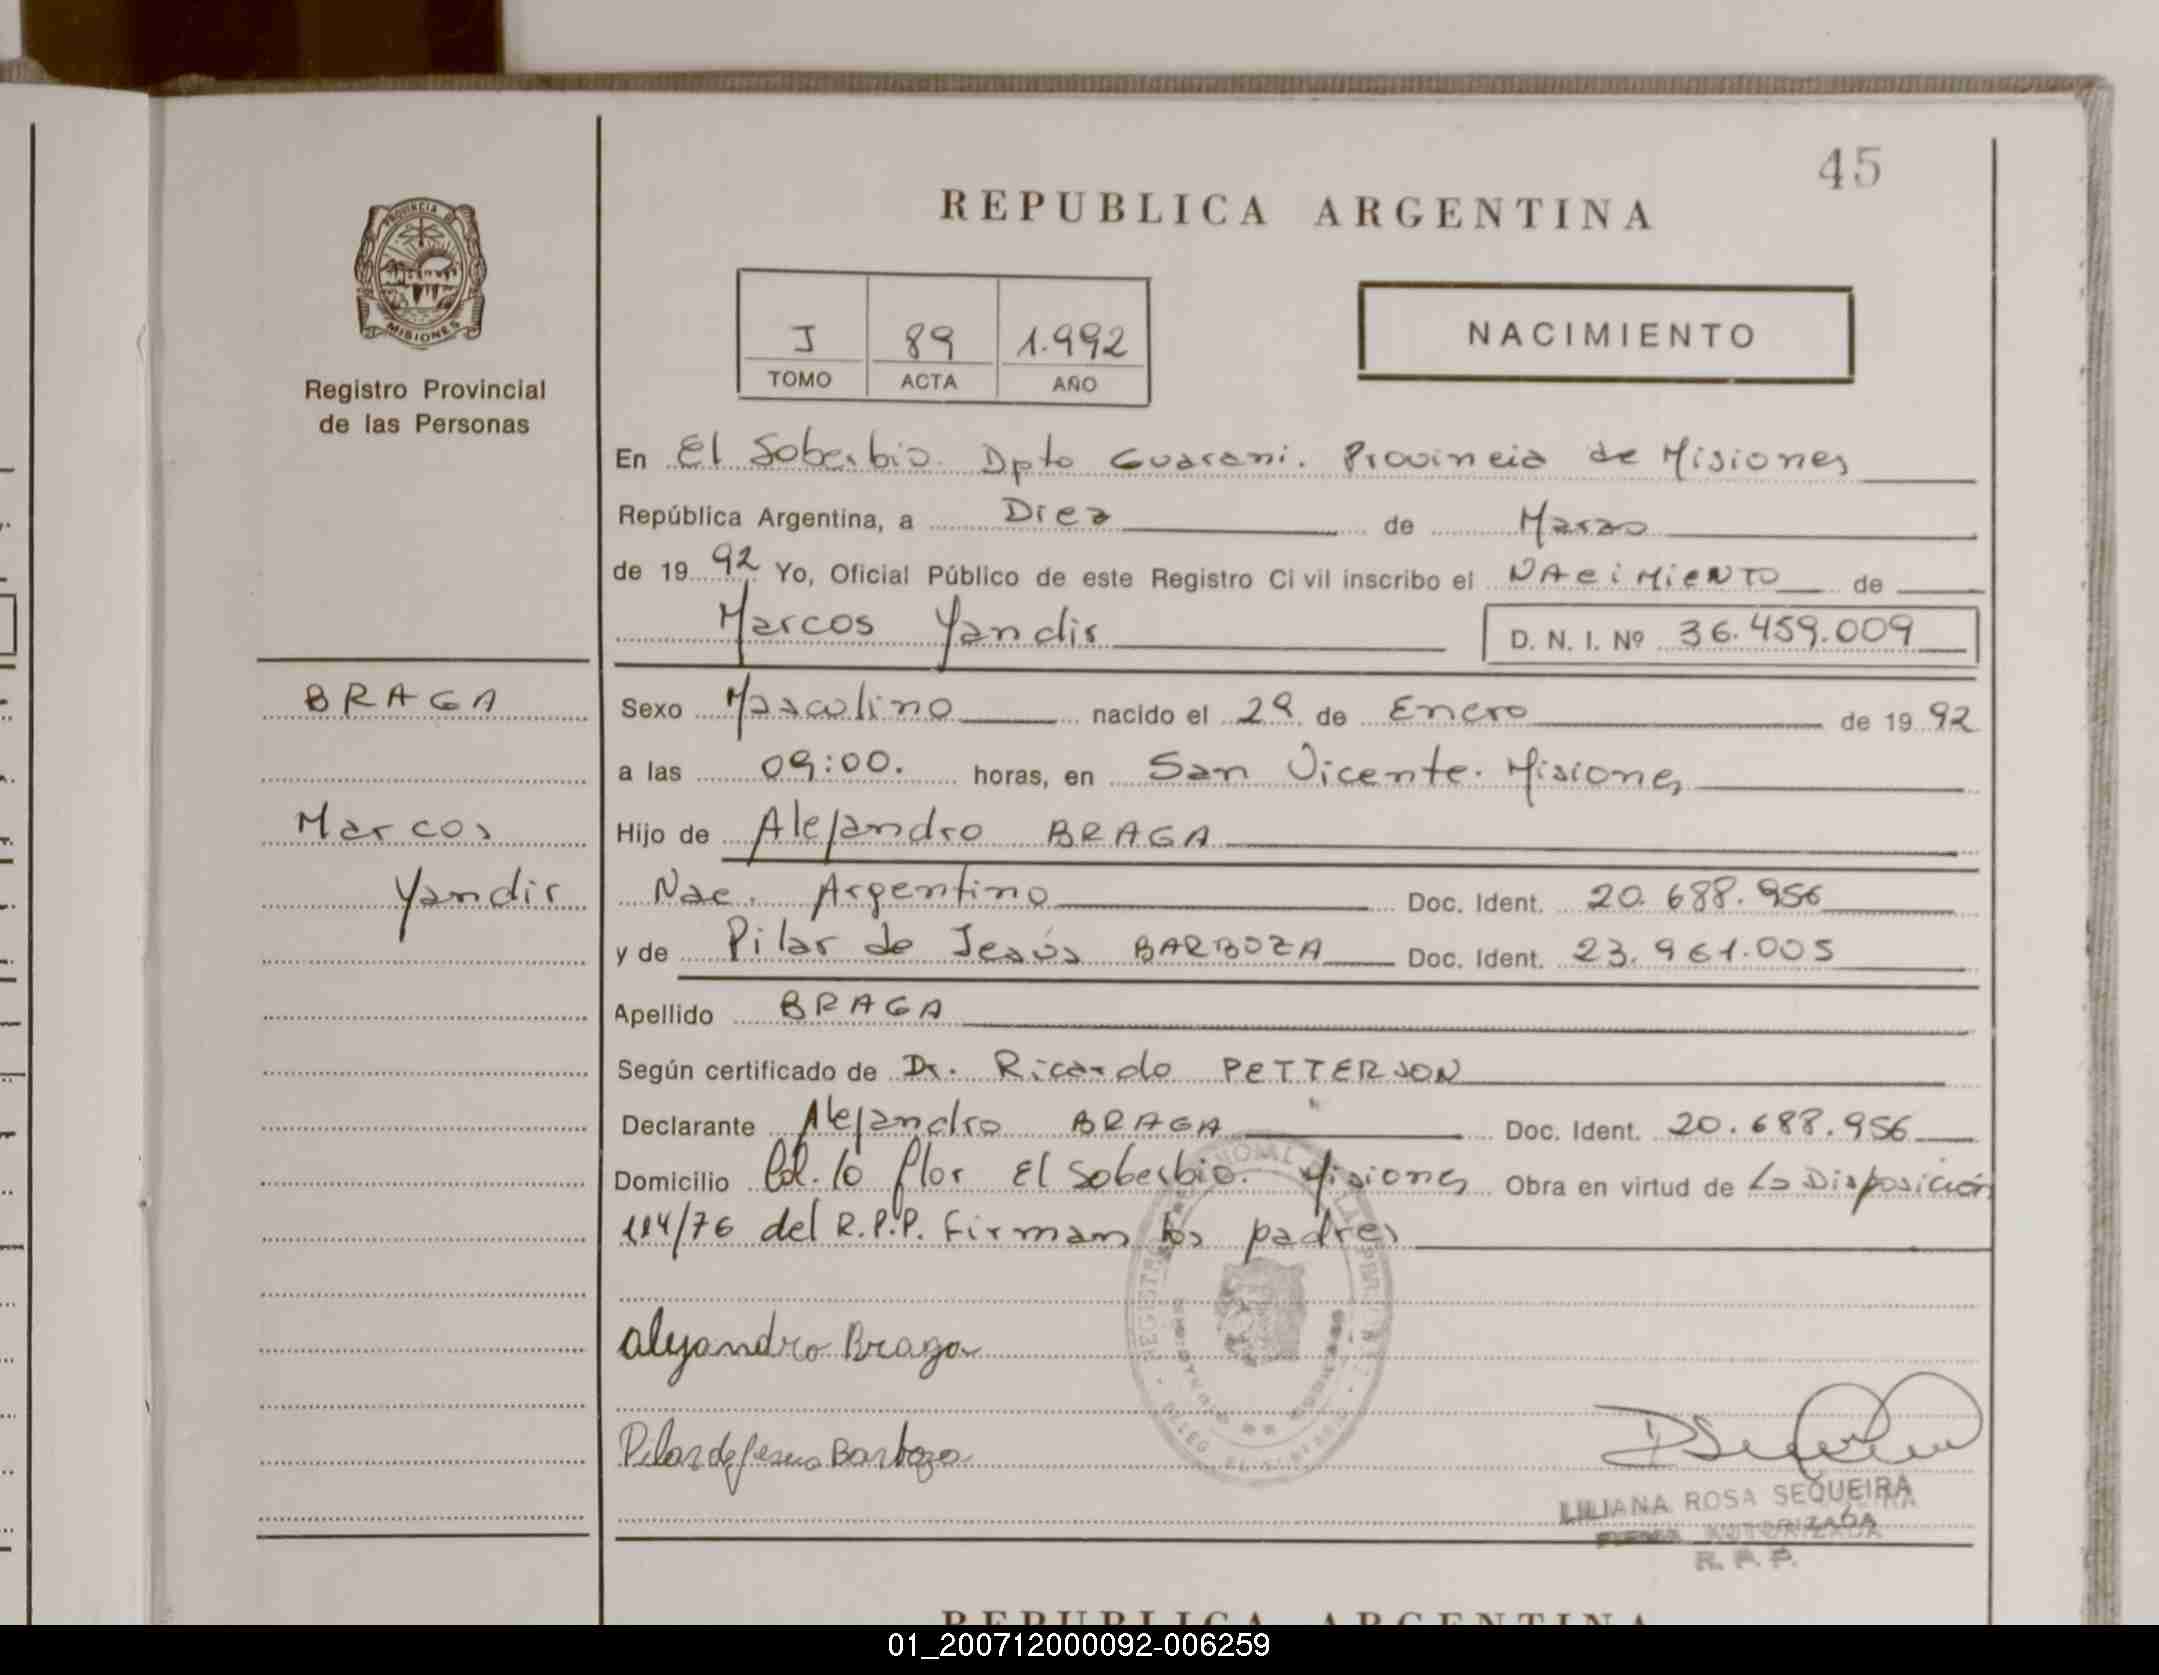 45
REPUBLICA ARGENTINA
PROVINCIA DE
MISIONES
Registro Provincial
de las Personas
J 89 1.992
TOMO ACTA AÑO
NACIMIENTO
En El Soberbio. Dpto Guarani. Provincia de Misiones
República Argentina, a Diez de Marzo
de 19 92 Yo, Oficial Público de este Registro Civil inscribo el NAciMieNTO de
Marcos Yandir D. N. I. Nº 36.459.009
BRAGA
Marcos
Yandir
Sexo Masculino nacido el 29 de Enero de 19 92
a las 09:00. horas, en San Vicente. Misiones
Hijo de Alejandro BRAGA
Nac. Argentino Doc. Ident. 20.688.956
y de Pilar de Jesús BARBOZA Doc. Ident. 23.961.005
Apellido BRAGA
Según certificado de Dr. Ricardo PETTERSON
Declarante Alejandro BRAGA Doc. Ident. 20.688.956
Domicilio Col. la flor El Soberbio. Misiones Obra en virtud de La Disposición
114/76 del R.P.P. Firman los padres
alejandro Braga
Pilar de Jesus Barboza
LILIANA ROSA SEQUEIRA
FIRMA AUTORIZADA
R. P. P.
REPUBLICA ARGENTINA
01_200712000092-006259